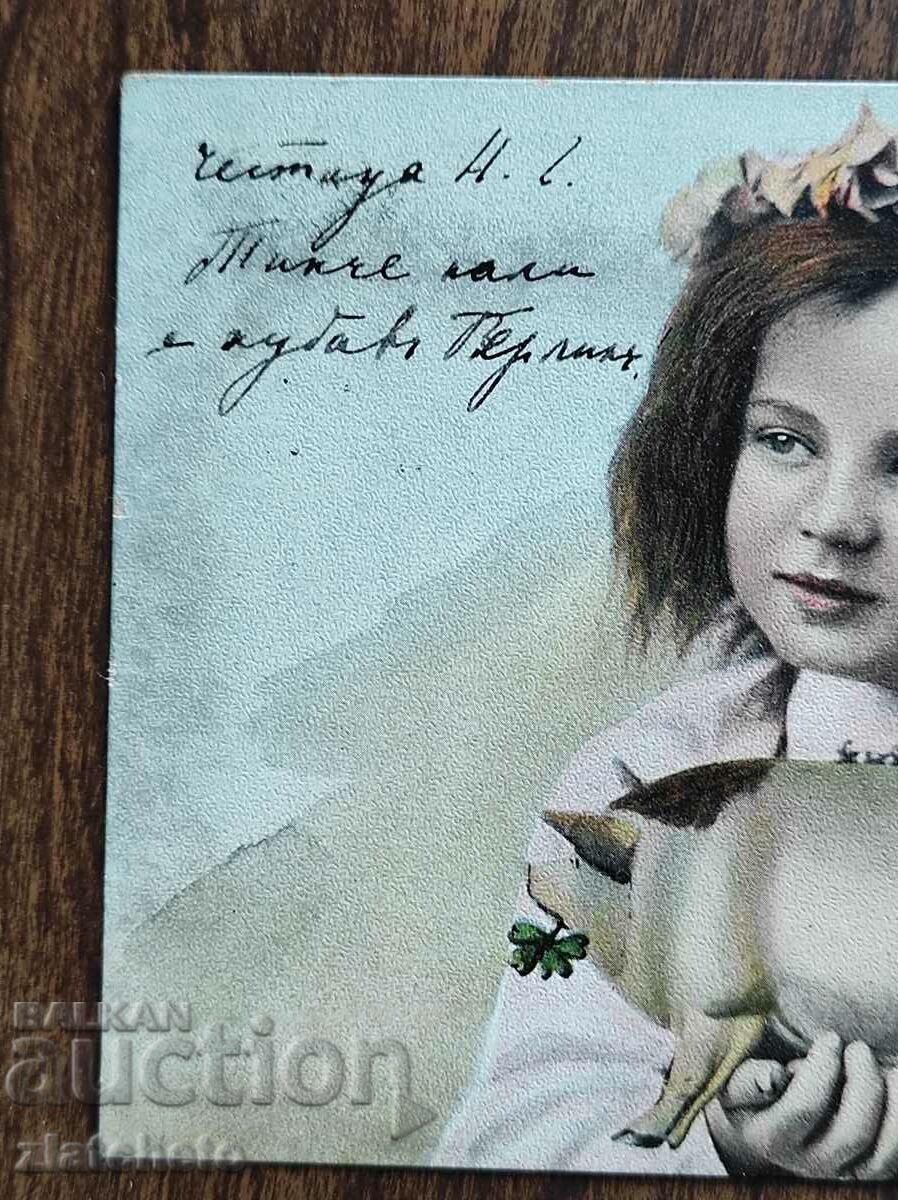 честита Н. Г.
Тинче нали
е хубавъ Берлинъ
BALKAN
auction
zlatcheto